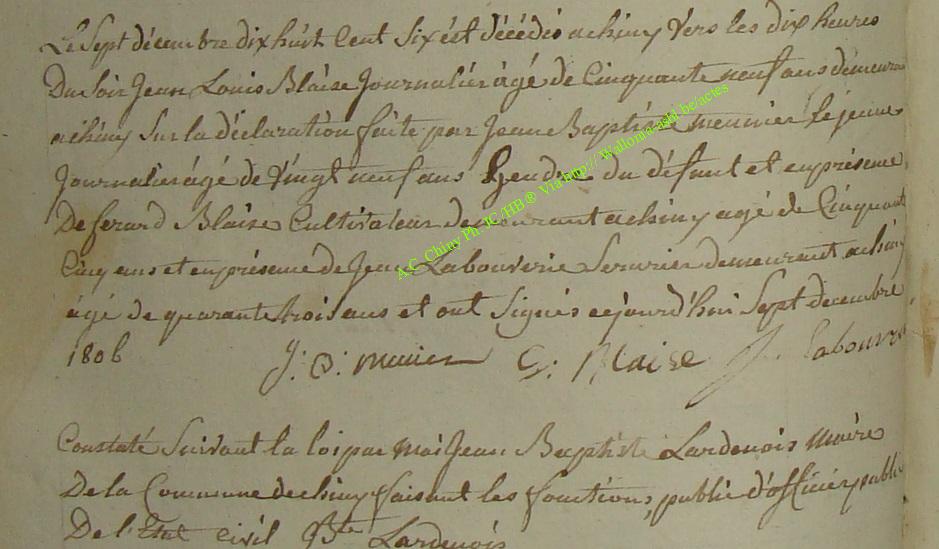 Le Sept décembre dix huit Cent Six est décédés achiny Vers les dix heures
Du Soir Jean Louis Blaise Journalier âgé de Cinquante neuf ans demeura
achiny Sur la déclaration faite par Jean Baptiste meunier le jeune
Journalier âgé de Vingt neuf ans gendre du défunt et enprésence
De Gerard Blaise Cultivateur demeurant achiny agé de Cinquant
Cinq ans et enprésence de Jean Labouverie Serurier demeurant achiny
âgé de quarante trois ans et ont Signés cejourd'hui Sept decembre
1806 J: B: Munier G: Blaise J labouvr
Constaté Suivant la loi par moi Jean Baptiste Lardenois maire
De la Commune de chiny faisant les fonctions public d'officier public
De l'Etat civil Bte Lardenois
A.C. Chiny Ph. JC/HB® Via http:// Wallonia-asbl.be/actes